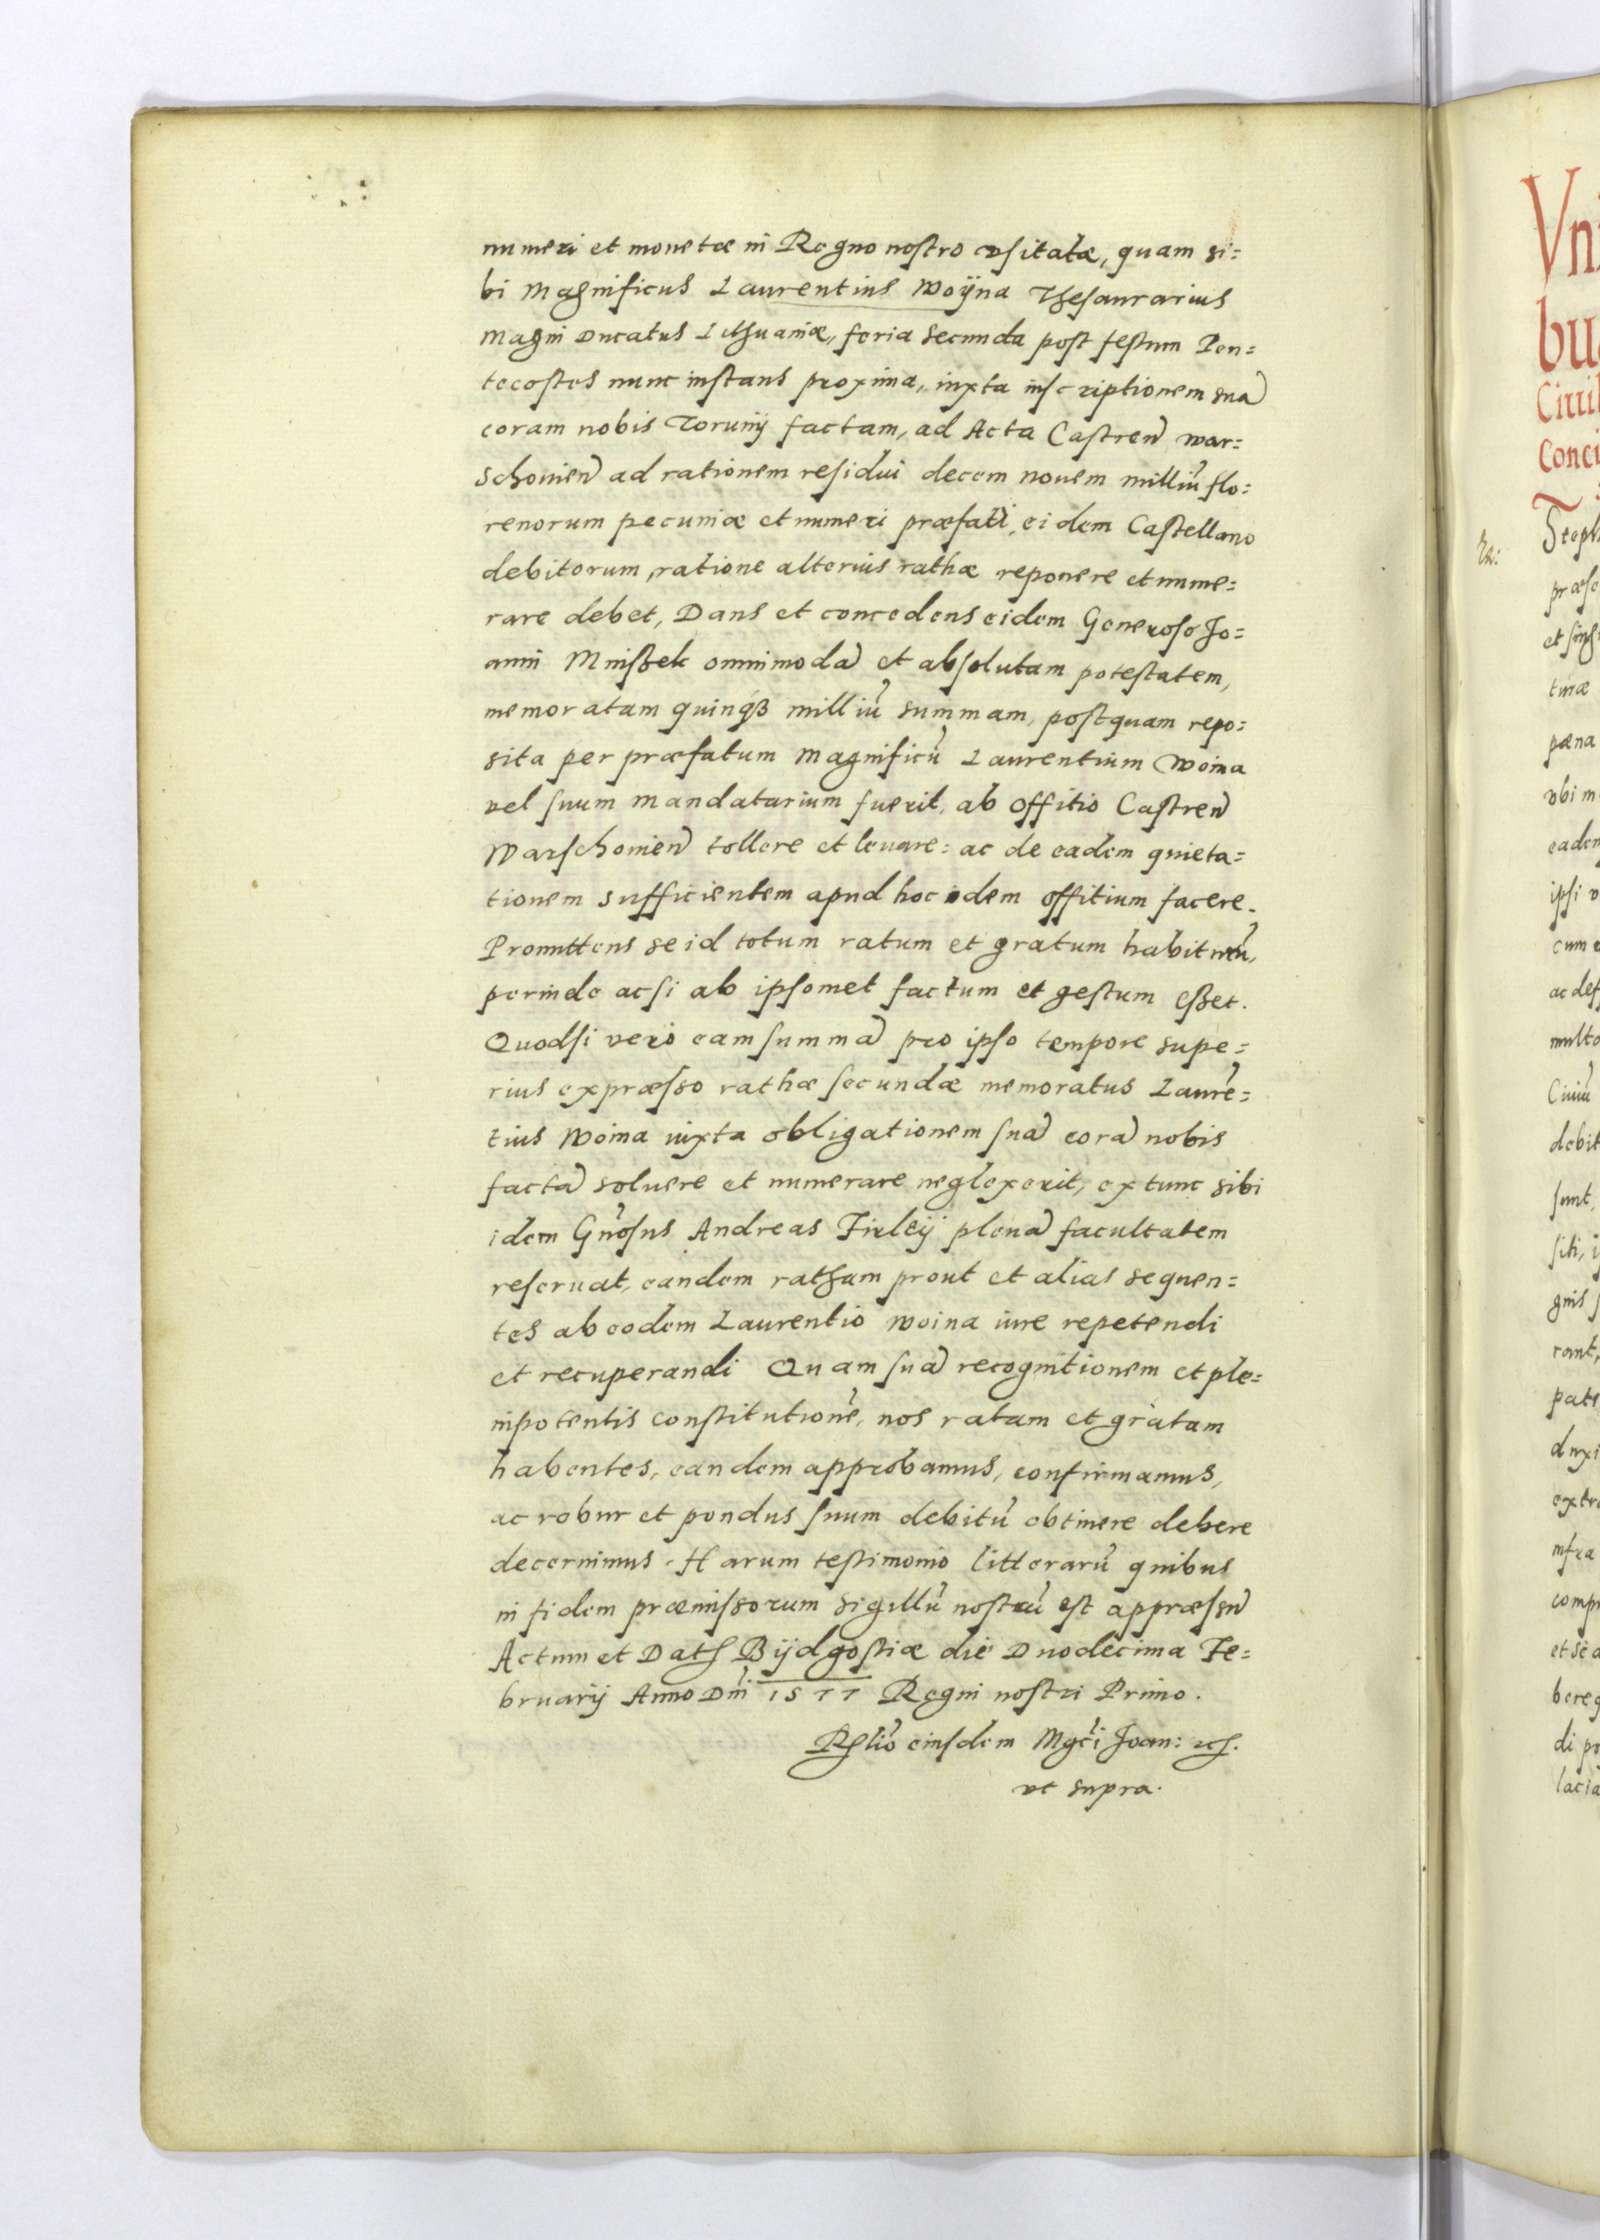 numeri et monetæ in Regno nostro vsitatæ, quam si=
bi Magnificus Laurentius Woijna Thesaurarius
Magni Ducatus Lithuaniæ, feria secunda post festum Pen=
tecostes nunc instans proxima, iuxta inscriptionem suã
coram nobis Torunij factam, ad Acta Castreñ War=
schouieñ ad rationem residui decem nouem milliũ flo=
renorum pecuniæ et numeri præfati, eidem Castellano
debitorum, ratione alterius rathæ reponere et nume=
rare debet, Dans et concedens eidem Generoso Jo=
anni Mnißek omnimodã et absolutam potestatem,
memoratam quinqʒ milliũ summam, postquam repo=
sita per præfatum Magnificũ Laurentium Woina
vel suum mandatarium fuerit, ab offitio Castreñ
Warschouieñ tollere et leuare: ac de eadem quieta=
tionem sufficientem apud hoc idem offitium facere.
Promittens se id totum ratum et gratum habiturũ,
perinde ac si ab ipsomet factum et gestum eßet.
Quodsi vero eam summã pro ipso tempore supe=
rius expræsso rathæ secundæ memoratus Laurẽ=
tius Woina iuxta obligationem suã corã nobis
factã soluere et numerare neglexerit, extunc sibi
idem Gñosus Andreas Firleij plenã facultatem
reseruat, eandem ratham prout et alias sequen=
tes ab eodem Laurentio Woina iure repetendi
et recuperandi Quam suã recognitionem et ple=
nipotentis constitutionẽ, nos ratam et gratam
habentes, eandem approbamus, confirmamus,
ac robur et pondus suum debitũ obtinere debere
decernimus. Harum testimonio litterarũ quibus
in fidem præmissorum sigillũ nostrũ est appræsũ
Actum et Dath Bijdgostiæ die Duodecima Fe=
bruarij Anno Dñi 1577 Regni nostri Primo.
Rhlio eiusdem Mgci Joan: etc.
vt supra.
Vn
bu
Ciuil
Conci
Re:
Steph
præse
et sing
tinæ
pæna
vbi m
eadem
ipsi v
cum e
ac def
multo
Ciuiũ
debit
sunt,
siti, i
gnis s
rant,
pate
duxi
extra
infra
comp
et se a
bereq
di po
lacia